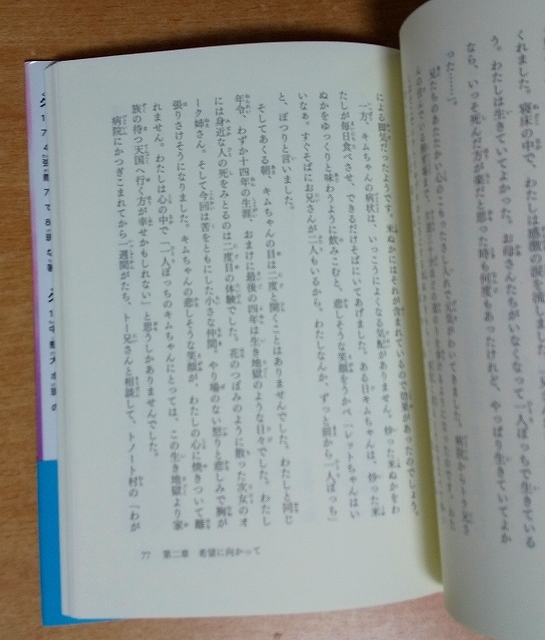 くれました。寝床の中で、わたしは感激の涙を流しました。
う。わたしは生きていてよかった。お母さんたちがいなくなって一人ぼっちで生きている
なら、いっそ死んだ方が楽だと思った時も何度もあったけれど、やっぱり生きていてよか
った……。
による脚気だったようです。米ぬかにはそれが含まれているので効果があったのでしょう。
一方、キムちゃんの病状は、いっこうによくなる気配がありません。炒った米ぬかをわ
たしが毎日食べさせ、できるだけそばにいてあげました。ある日キムちゃんは、炒った米
ぬかをゆっくりと味わうように飲みこむと、悲しそうな笑顔をうかべ「レットちゃんはい
いなぁ。すぐそばにお兄さんが二人もいるから。わたしなんか、ずっと前から一人ぼっち」
と、ぽつりと言いました。
そしてあくる朝、キムちゃんの目は二度と開くことはありませんでした。わたしと同じ
年令、わずか十四年の生涯、おまけに最後の四年は生き地獄のような日々でした。わたし
には身近な人の死をみとるのは二度目の体験でした。花のつぼみのように散った次女のオ
ーク姉さん。そして今回は苦をともにした小さな仲間。やり場のない怒りと悲しみで胸が
張りさけそうになりました。キムちゃんの悲しそうな笑顔が、わたしの心に焼きついて離
れません。わたしは心の中で「一人ぼっちのキムちゃんにとっては、この生き地獄より家
族の待つ天国へ行く方が幸せかもしれない」と思うしかありませんでした。
病院にかつぎこまれてから一週間がたち、トー兄さんと相談して、トノート村の「わが
77 第二章 希望に向かって